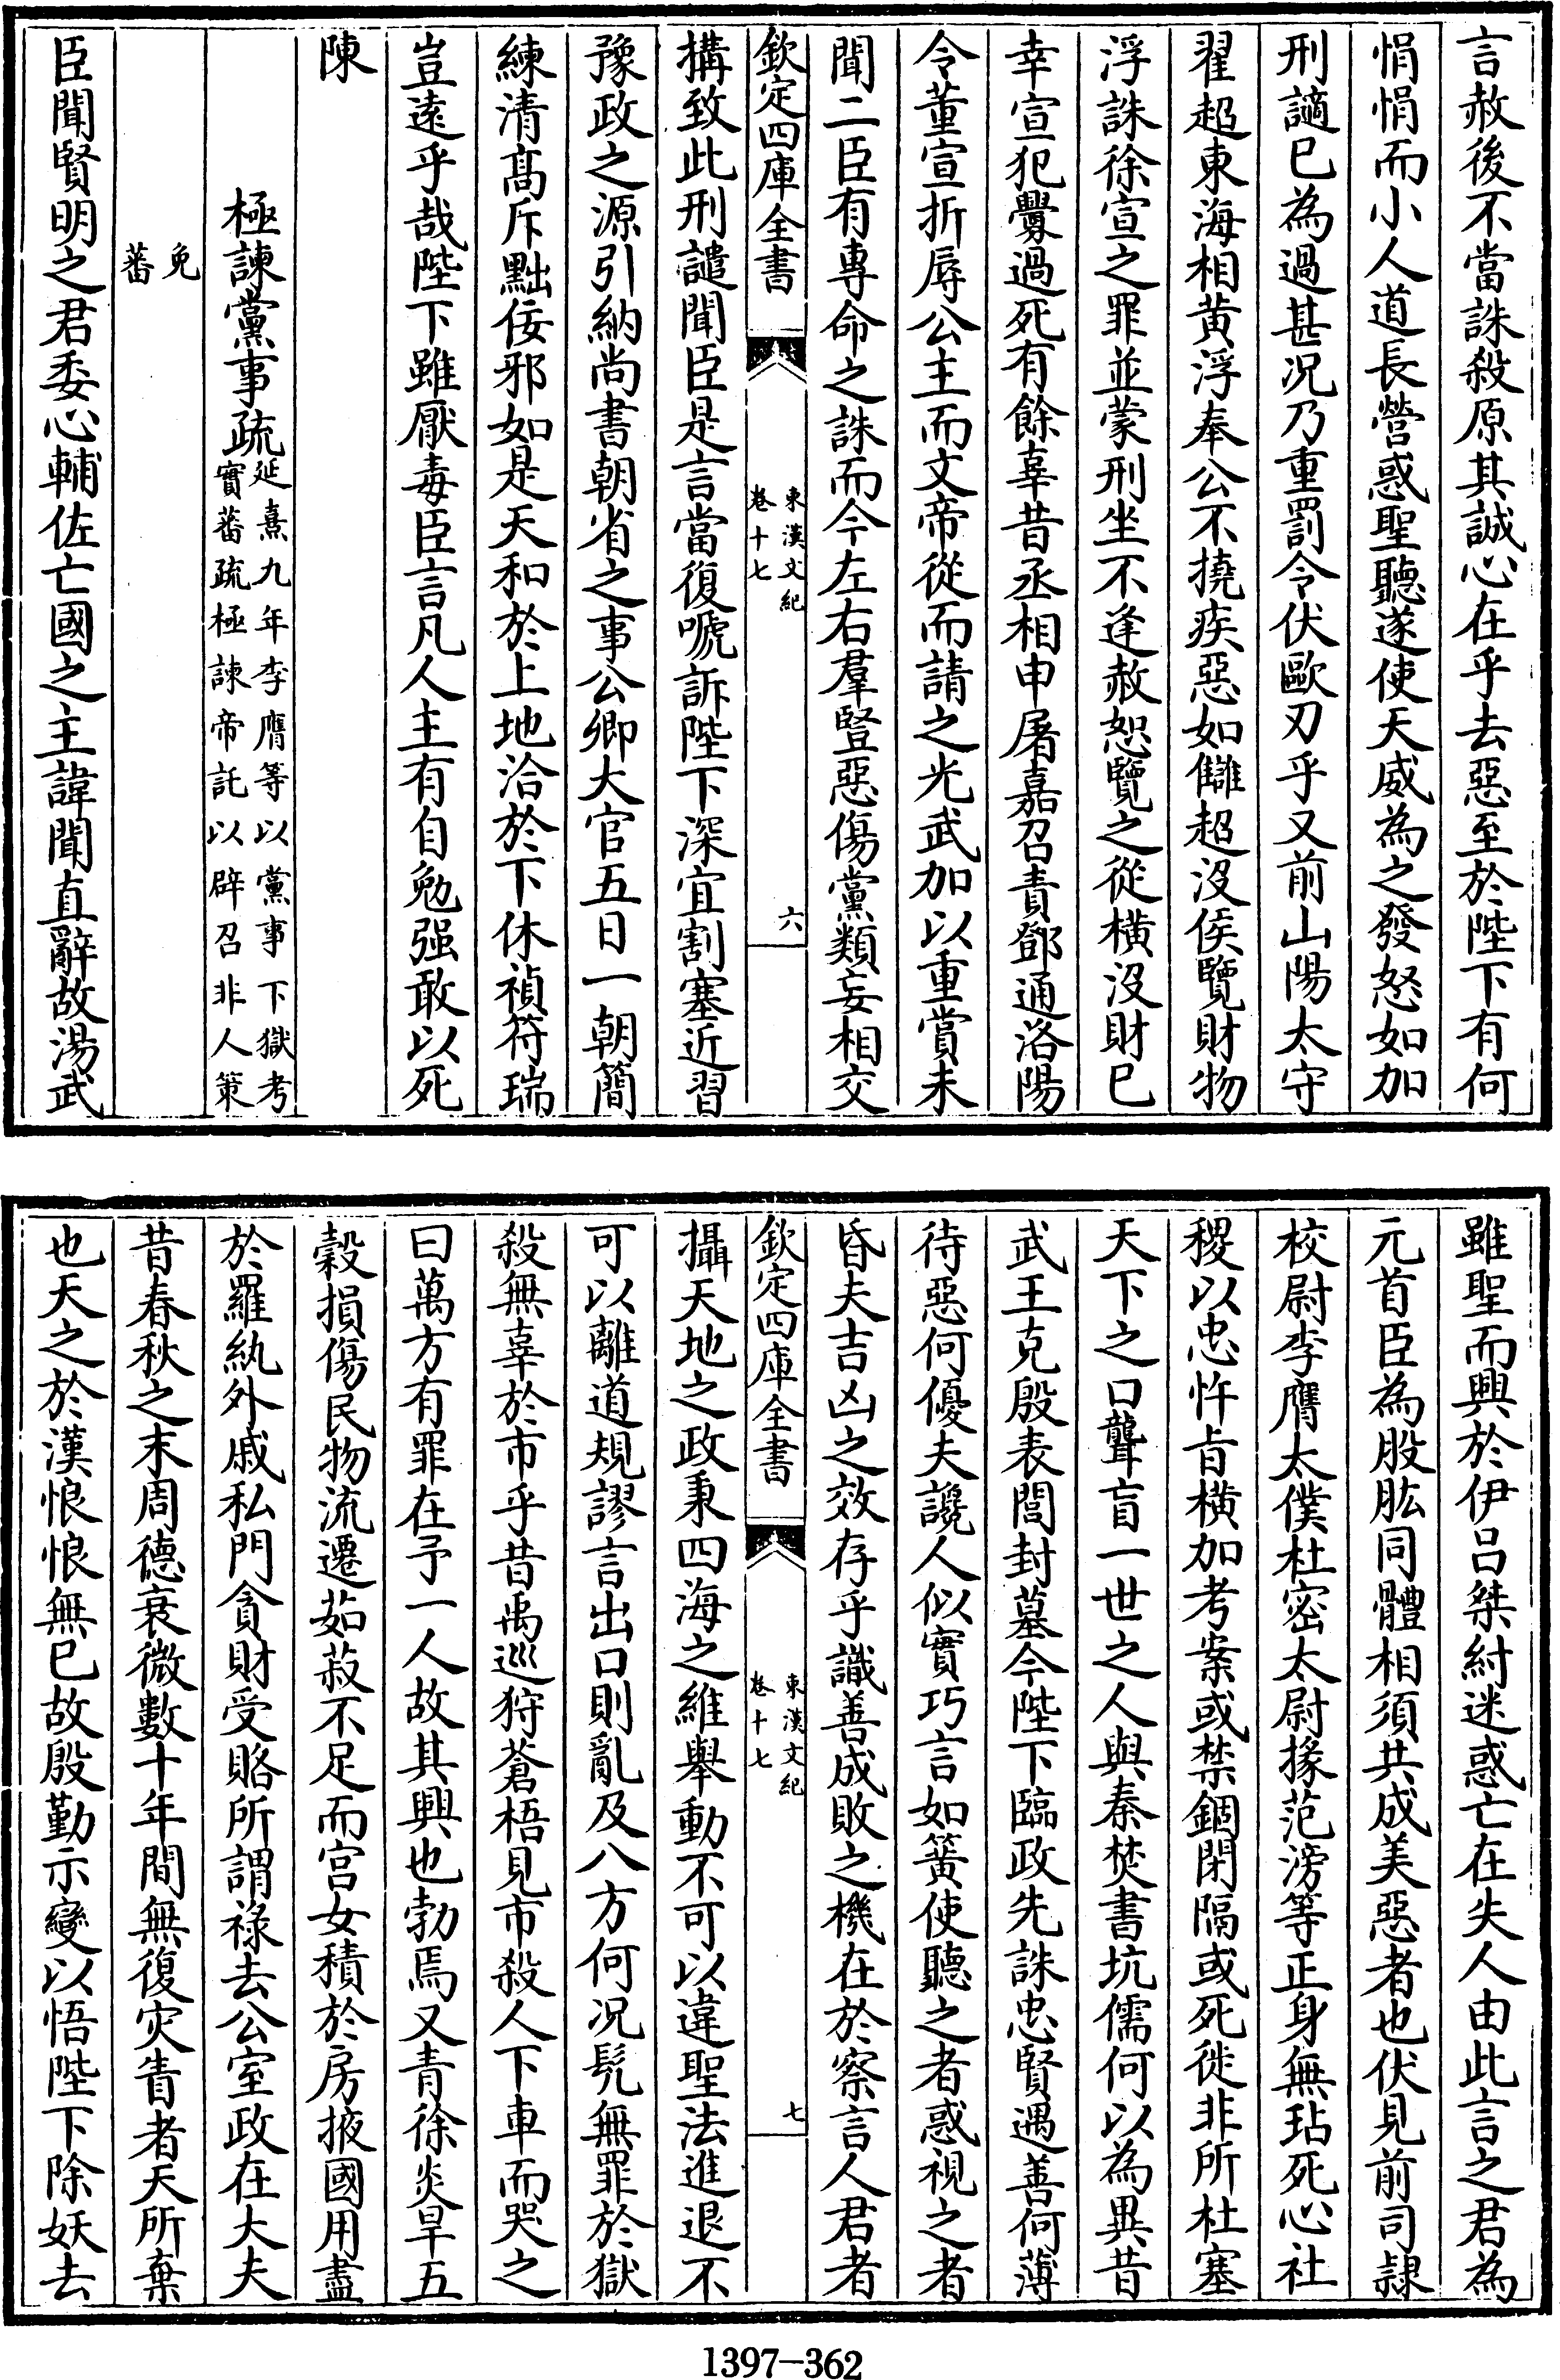 言赦後不當誅殺原其誠心在乎去惡至於陛下有何
悁悁而小人道長營惑聖聽遂使天威為之發怒如加
刑讁已為過甚况乃重罰令伏歐刃乎又前山陽太守
翟超東海相黄浮奉公不撓疾惡如讎超没侯覽財物
浮誅徐宣之罪並蒙刑坐不逢赦恕覽之從横没財已
幸宣犯釁過死有餘辜昔丞相申屠嘉召責鄧通洛陽
令董宣折辱公主而文帝從而請之光武加以重賞未
聞二臣有專命之誅而今左右羣豎惡傷黨類妄相交
欽定四庫全書
東漢文紀
卷十七
六
構致此刑譴聞臣是言當復嗁訴陛下深宜割塞近習
豫政之源引納尚書朝省之事公卿大官五日一朝簡
練清髙斥黜佞邪如是天和於上地洽於下休禎符瑞
豈逺乎哉陛下雖厭毒臣言凡人主有自勉强敢以死
陳
極諫黨事疏延熹九年李膺等以黨事下獄考
實蕃疏極諫帝託以辟召非人策
免
蕃
臣聞賢明之君委心輔佐亡國之主諱聞直辭故湯武
雖聖而興於伊吕桀紂迷惑亡在失人由此言之君為
元首臣為股肱同體相須共成美惡者也伏見前司隷
校尉李膺太僕杜密太尉掾范滂等正身無玷死心社
稷以忠忤旨横加考案或禁錮閉隔或死徙非所杜塞
天下之口聾盲一世之人與秦焚書坑儒何以為異昔
武王克殷表閭封墓今陛下臨政先誅忠賢遇善何薄
待惡何優夫讒人似實巧言如簧使聽之者惑視之者
昏夫吉凶之效存乎識善成敗之機在於察言人君者
欽定四庫全書
東漢文紀
卷十七
七
攝天地之政秉四海之維舉動不可以違聖法進退不
可以離道規謬言出口則亂及八方何况髠無罪於獄
殺無辜於市乎昔禹巡狩蒼梧見市殺人下車而哭之
曰萬方有罪在予一人故其興也勃焉又青徐炎旱五
穀損傷民物流遷茹菽不足而宫女積於房掖國用盡
於羅紈外戚私門貪財受賂所謂祿去公室政在大夫
昔春秋之末周德衰微數十年間無復灾眚者天所棄
也天之於漢悢悢無已故殷勤示變以悟陛下除妖去
1397-362